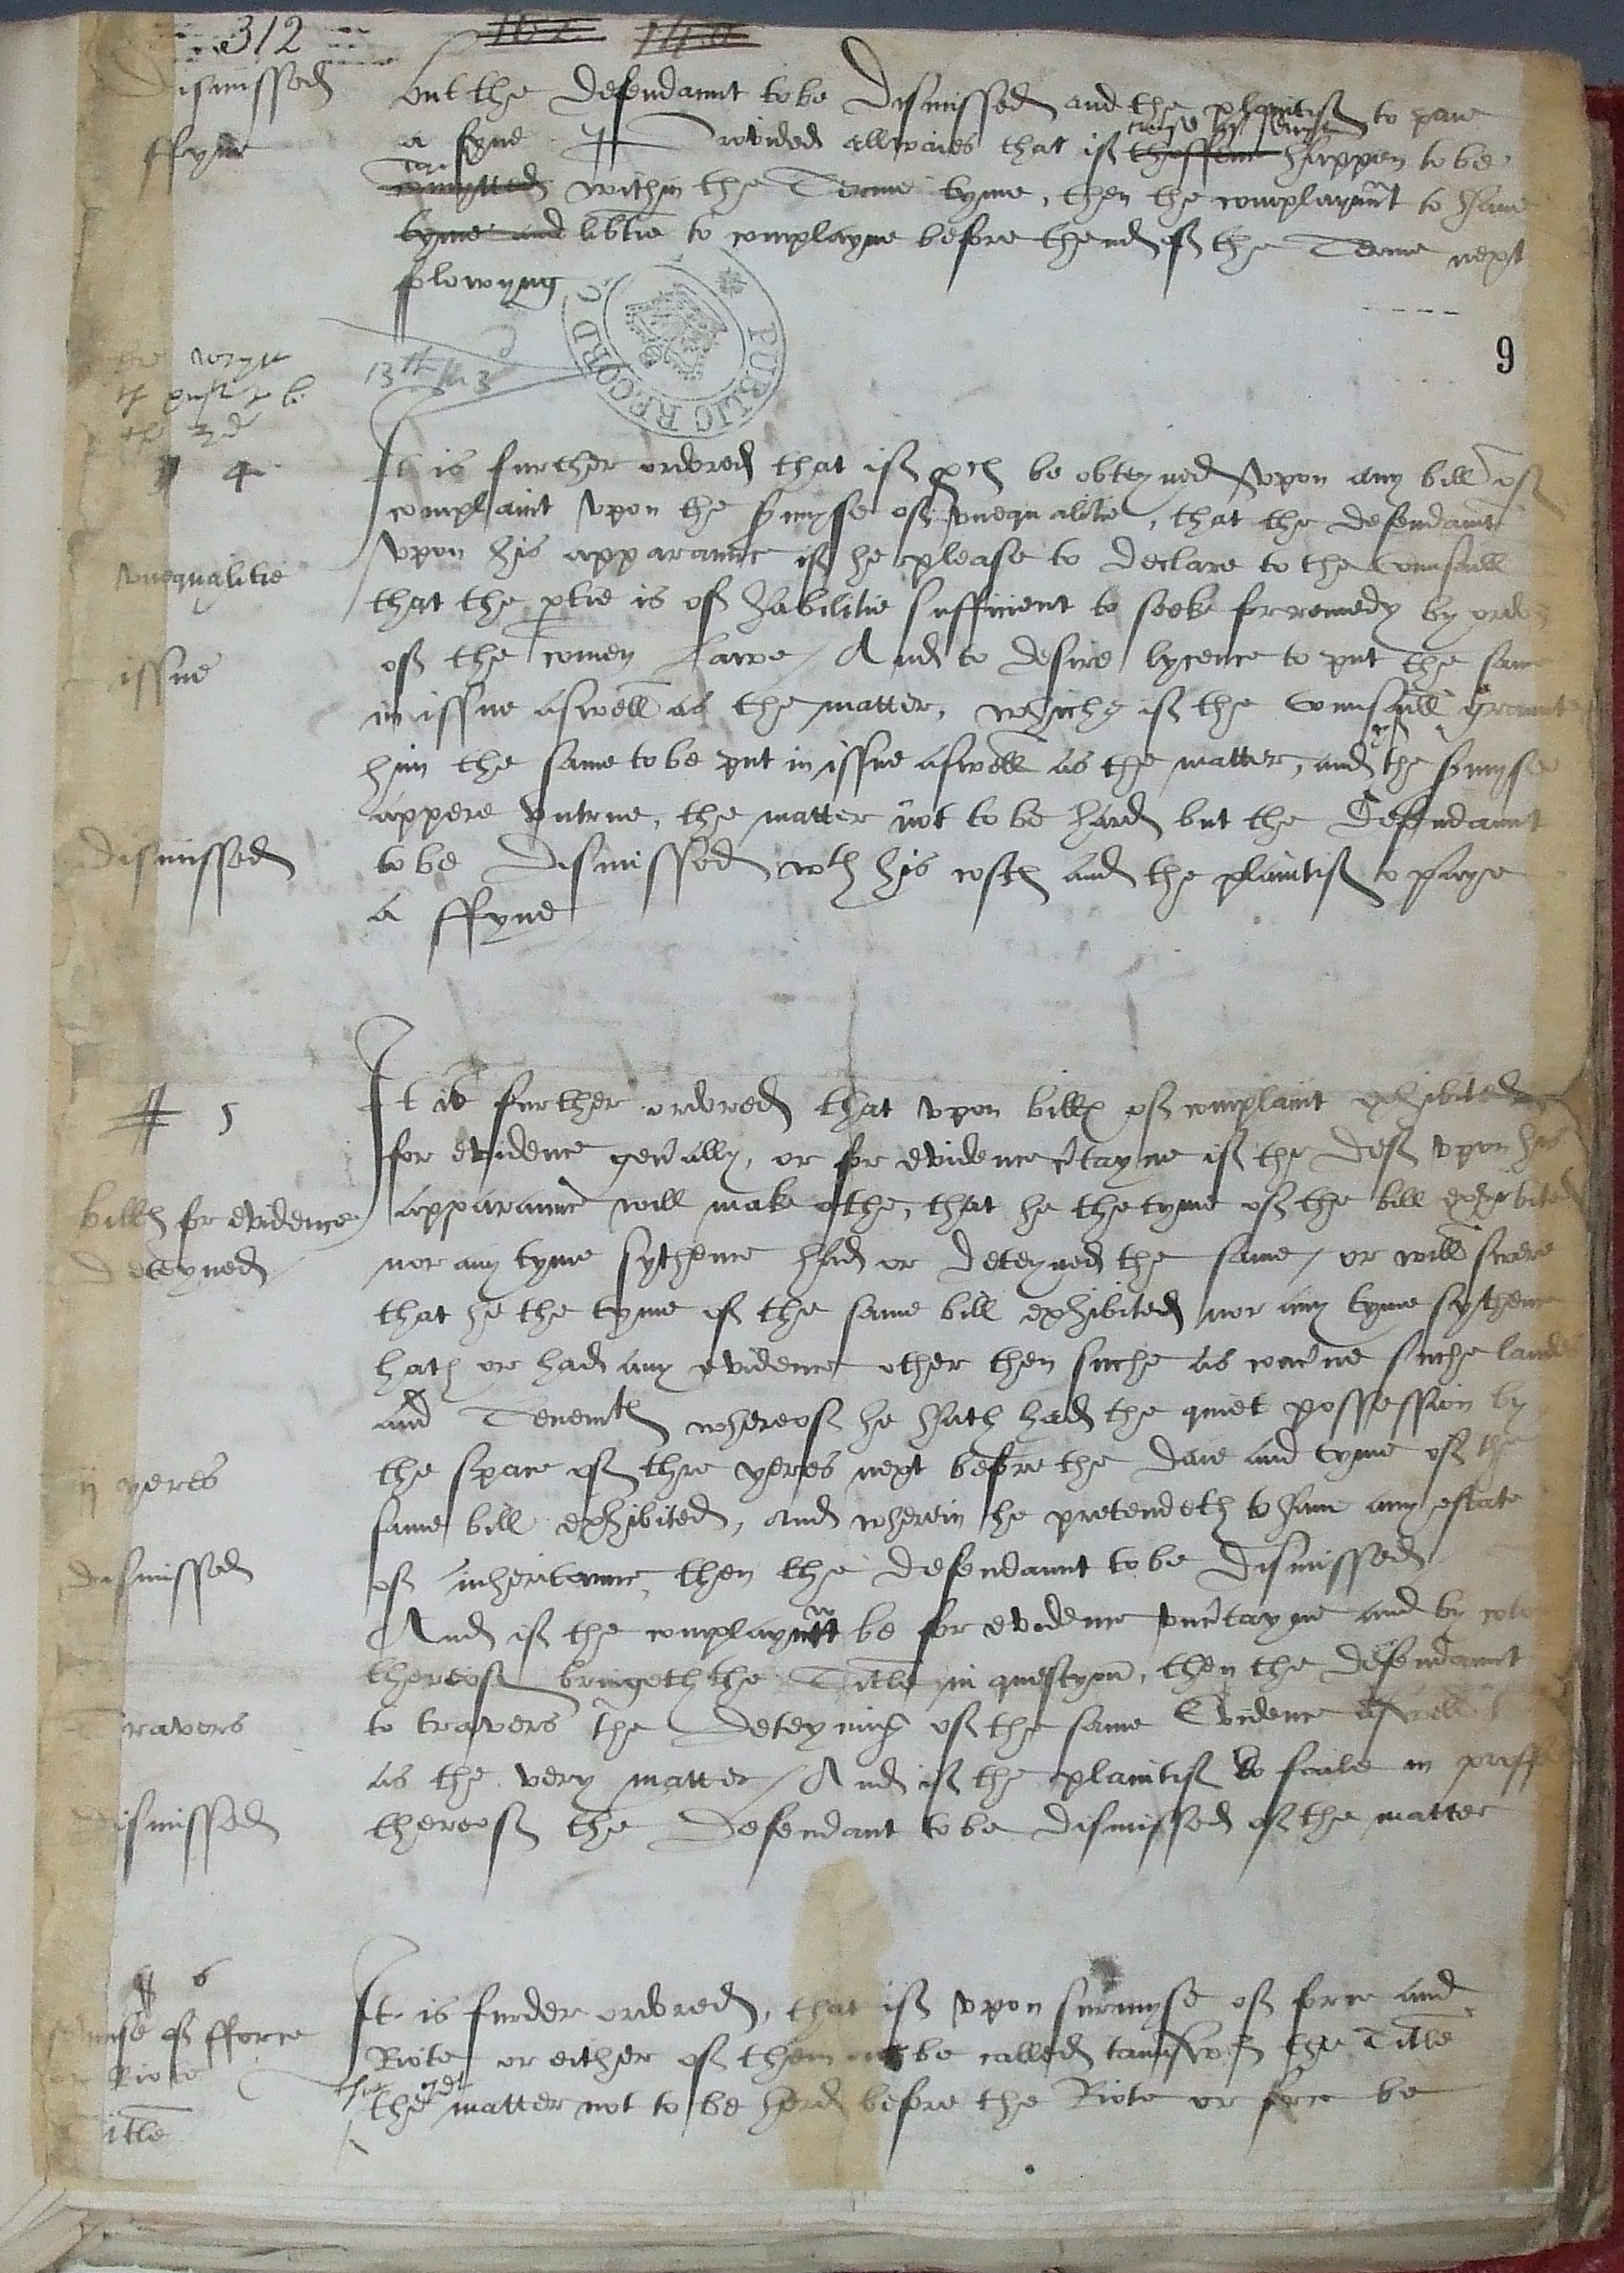 312
dismissed
but the defendaunt to be dismissed and the plaintif to paie
ffyne
a fyne Provided allwaies that if thoffence happen to be
comytted within the Terme tyme, then the complaynaunt to have
tyme and libtie to complayne before thend of the Terme next
folowyng
PUBLIC RECORD
9
4
It is further ordered that if pces be obteyned upon any bill of
complaint upon the surmyse of unequalitie, that the defendaunt
upon his apparaunce if he please to declare to the counsaill
unequalitie
that the ptie is of habilitie sufficient to seek for remedy by order
issue
of the comen Lawe / And to desire lycence to put the same
in issue aswell as the matter, whiche if the counsaill graunte
him the same to be put in issue aswell as the matter, and if the surmyse
appere untrue, the matter not to be hard but the Defendaunt
dismissed
to be dismissed wth his costes and the plaintif to paye
a ffyne
5
It is further ordered that upon billes of complaint exhibited
for evidence genally, or for evidence ctayne if the def upon his
billes for evidence
apparaunce will make othe, that he the tyme of the bill exhibited
deteyned
nor any tyme sythence had or deteyned the same / or will swere
that he the tyme of the same bill exhibited nor any tyme sythence
hath or had any evidence other then suche as concne suche landes
and Tenemtes whereof he hath had the quiet possession by
yeres
the space of thre yeres next before the date and tyme of the
same bill exhibited, and wherein he pretendeth to have any estate
dismissed
of inheritaunce, then the defendaunt to be dismissed
And if the complaynt be for evidence unctayne and by
thereof bringeth the Title in questyon, then the defendaunt
Travers
to travers the deteynig of the same Evidence aswell
as the very matter / And if the plaintif do faile in
dismissed
thereof the defendant to be dismissed of the matter
6
It is furder ordered, that if upon surmyse of force and
surmise of fforce
Riote or either of them be called taunswer the Title
or Riote
the matter not to be herd before the Riote or force be
Title